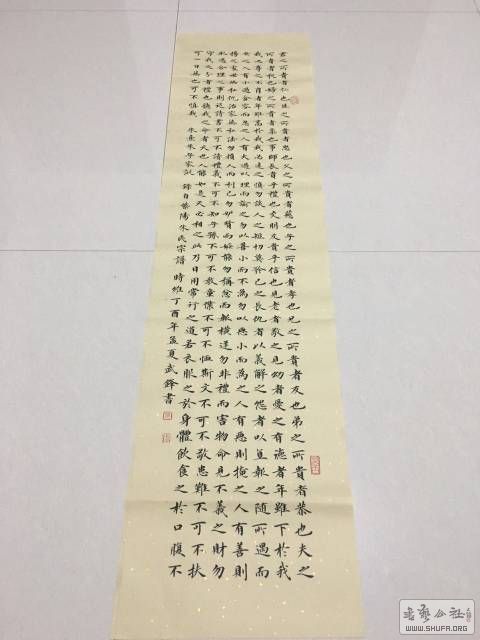 君之所貴者仁也臣之所貴者忠也父之所貴者慈也子之所貴者孝也兄之所貴者友也弟之所貴者恭也夫之
所貴者和也婦之所貴者柔也事師長貴乎禮也交朋友貴乎信也見老者敬之見幼者愛之有德者年雖下於我
我必尊之不肖者年雖高於我我必遠之慎勿談人之短切莫矜己之長仇者以義解之怨者以直報之隨所遇而
安之人有小過含容而忍之人有大過以理而諭之勿以善小而不為勿以惡小而為之人有惡則掩之人有善則
揚之處世無私仇治家無私法勿損人而利己勿妒賢而嫉能勿稱忿而報橫逆勿非禮而害物命見不義之財勿
取遇合理之事則從詩書不可不讀禮義不可不知子孫不可不教童僕不可不恤斯文不可不敬患難不可不扶
守我之分者禮也聽我之命者天也人能如是天必相之此乃日用常行之道若衣服之於身體飲食之於口腹不
可一日無也可不慎哉 朱熹朱子家訓 錄自紫陽朱氏宗譜 時維丁酉年孟夏武鋒書
書藝公社
WWW.SHUFA.ORG